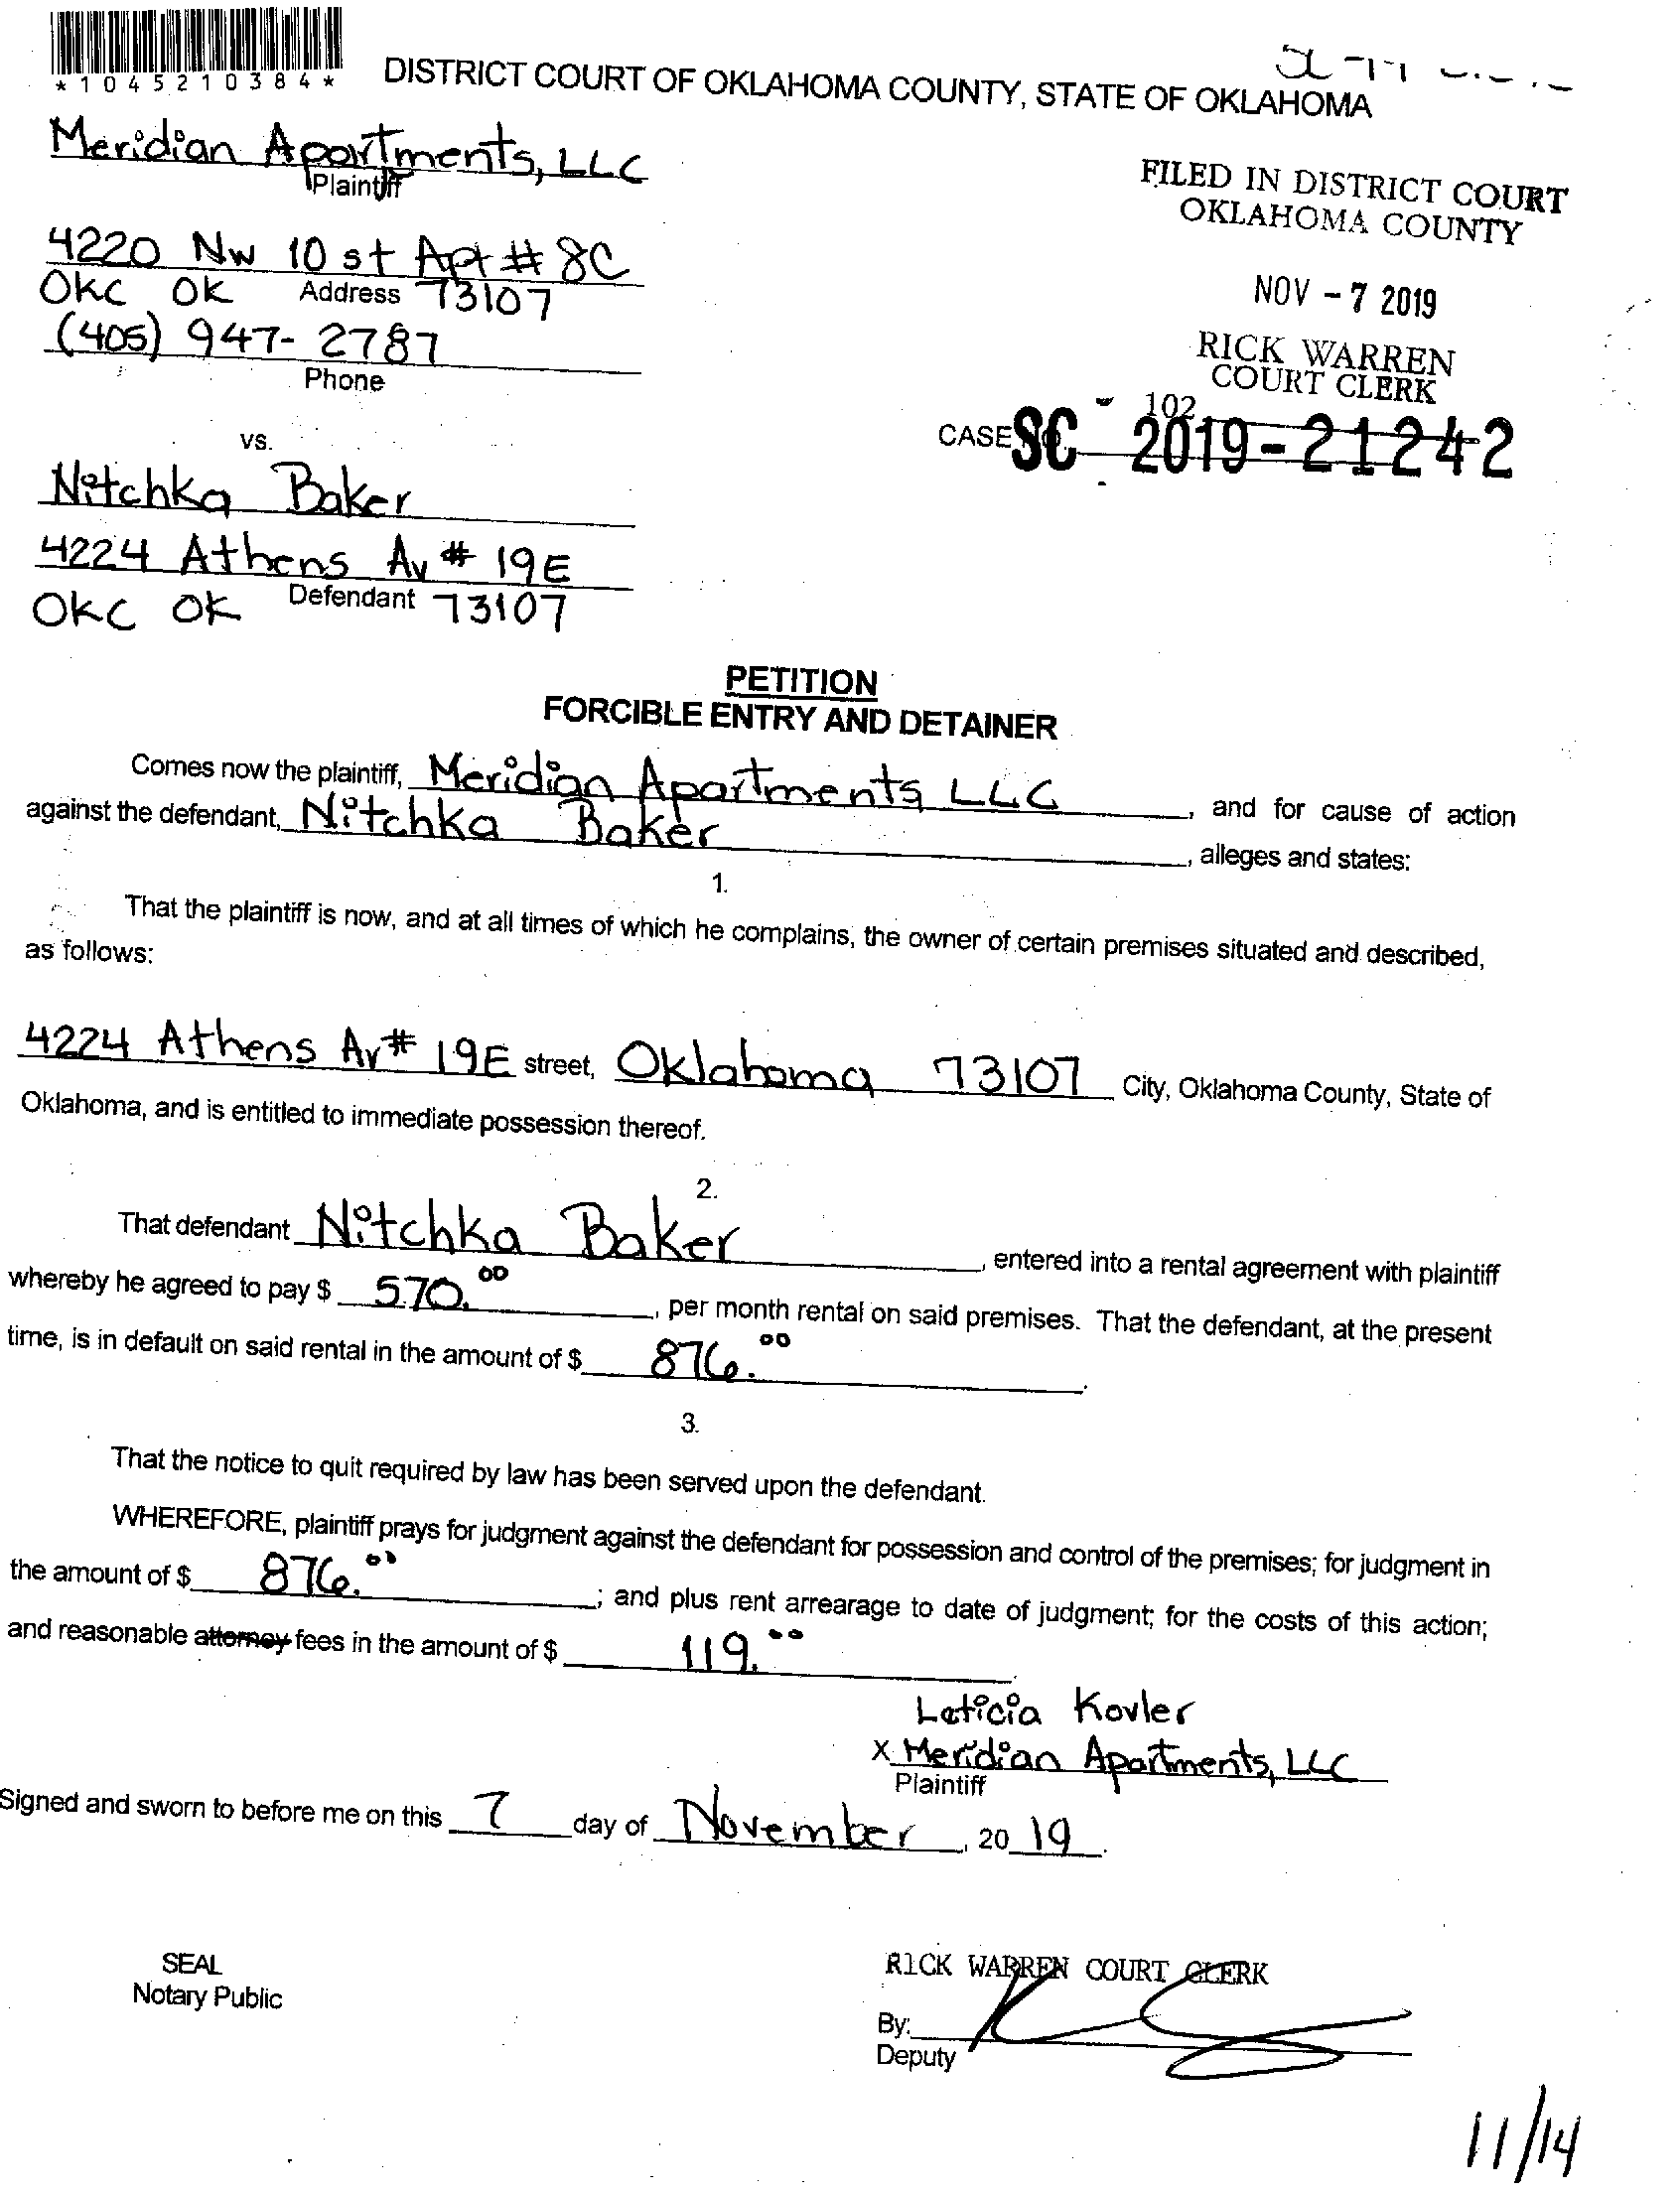 *1045210384*
DISTRICT COURT OF OKLAHOMA COUNTY, STATE OF OKLAHOMA
Meridian Apartments, LLC
Plaintiff
4220 NW 10 st Apt # 8C
OKC OK Address 73107
(405) 947-2787
Phone
FILED IN DISTRICT COURT
OKLAHOMA COUNTY
NOV - 7 2019
RICK WARREN
COURT CLERK
102
CASE No. SC - 2019-21242
vs.
Nitchka Baker
4224 Athens Av # 19E
Defendant
OKC OK 73107
PETITION
FORCIBLE ENTRY AND DETAINER
Comes now the plaintiff, Meridian Apartments LLC
against the defendant, Nitchka Baker, and for cause of action
, alleges and states:
1.
That the plaintiff is now, and at all times of which he complains, the owner of certain premises situated and described,
as follows:
4224 Athens Av# 19E street, Oklahoma 73107 City, Oklahoma County, State of
Oklahoma, and is entitled to immediate possession thereof.
2.
That defendant Nitchka Baker, entered into a rental agreement with plaintiff
whereby he agreed to pay $ 570.00, per month rental on said premises. That the defendant, at the present
time, is in default on said rental in the amount of $ 876.00.
3.
That the notice to quit required by law has been served upon the defendant.
WHEREFORE, plaintiff prays for judgment against the defendant for possession and control of the premises; for judgment in
the amount of $ 876.00; and plus rent arrearage to date of judgment; for the costs of this action;
and reasonable attorney fees in the amount of $ 119.00.
Leticia Kovler
X Meridian Apartments, LLC
Plaintiff
Signed and sworn to before me on this 7 day of November, 20 19.
SEAL
Notary Public
RICK WARREN COURT CLERK
By:
Deputy
11/14